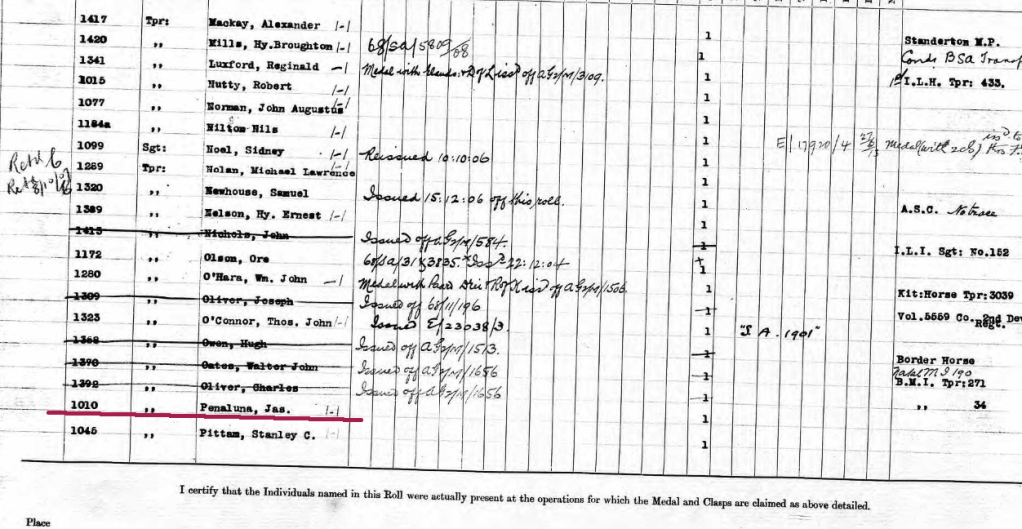 1417 Tpr: Mackay, Alexander 1-1 1
1420 ,, Mills, Hy.Broughton 1-1 68/SA/5809/08 1 Standerton M.P.
1341 ,, Luxford, Reginald -1 Medal with off AG2/M/3109. 1 BSA
1015 ,, Nutty, Robert 1-1 1 I.L.H. Tpr: 433.
1077 ,, Norman, John Augustus 1-1 1
1184a ,, Nilton Nils 1-1 1
1099 Sgt: Noel, Sidney 1-1 Reissued 10:10:06 1 E/17920/4 Medal (with 2 cls)
1289 Tpr: Nolan, Michael Lawrence 1-1 1
1320 ,, Newhouse, Samuel Issued 15:12:06 off this roll. 1
1389 ,, Nelson, Hy. Ernest 1-1 1 A.S.C. No trace
1413 ,, Nichols, John Issued off AG2/M/584. 1
1172 ,, Olson, Ore 68/SA/31 3835. 22:12:04 1 I.L.I. Sgt: No.152
1280 ,, O'Hara, Wm. John -1 Medal with off AG2/M/1506. 1
1309 ,, Oliver, Joseph Issued off 68/11/196 1 Kit:Horse Tpr:3039
1323 ,, O'Connor, Thos. John 1-1 Issued E/23038/3. 1 "S A. 1901" Vol.5559 Co. 2nd Dev Regt.
1368 ,, Owen, Hugh Issued off AG2/M/1513. 1
1370 ,, Oates, Walter John Issued off AG2/M/1656 1 Border Horse
1392 ,, Oliver, Charles Issued off AG2/M/1656 1 B.M.I. Tpr:271
1010 ,, Penaluna, Jas. 1-1 1 ,, 34
1045 ,, Pittam, Stanley C. 1-1 1
I certify that the Individuals named in this Roll were actually present at the operations for which the Medal and Clasps are claimed as above detailed.
Place